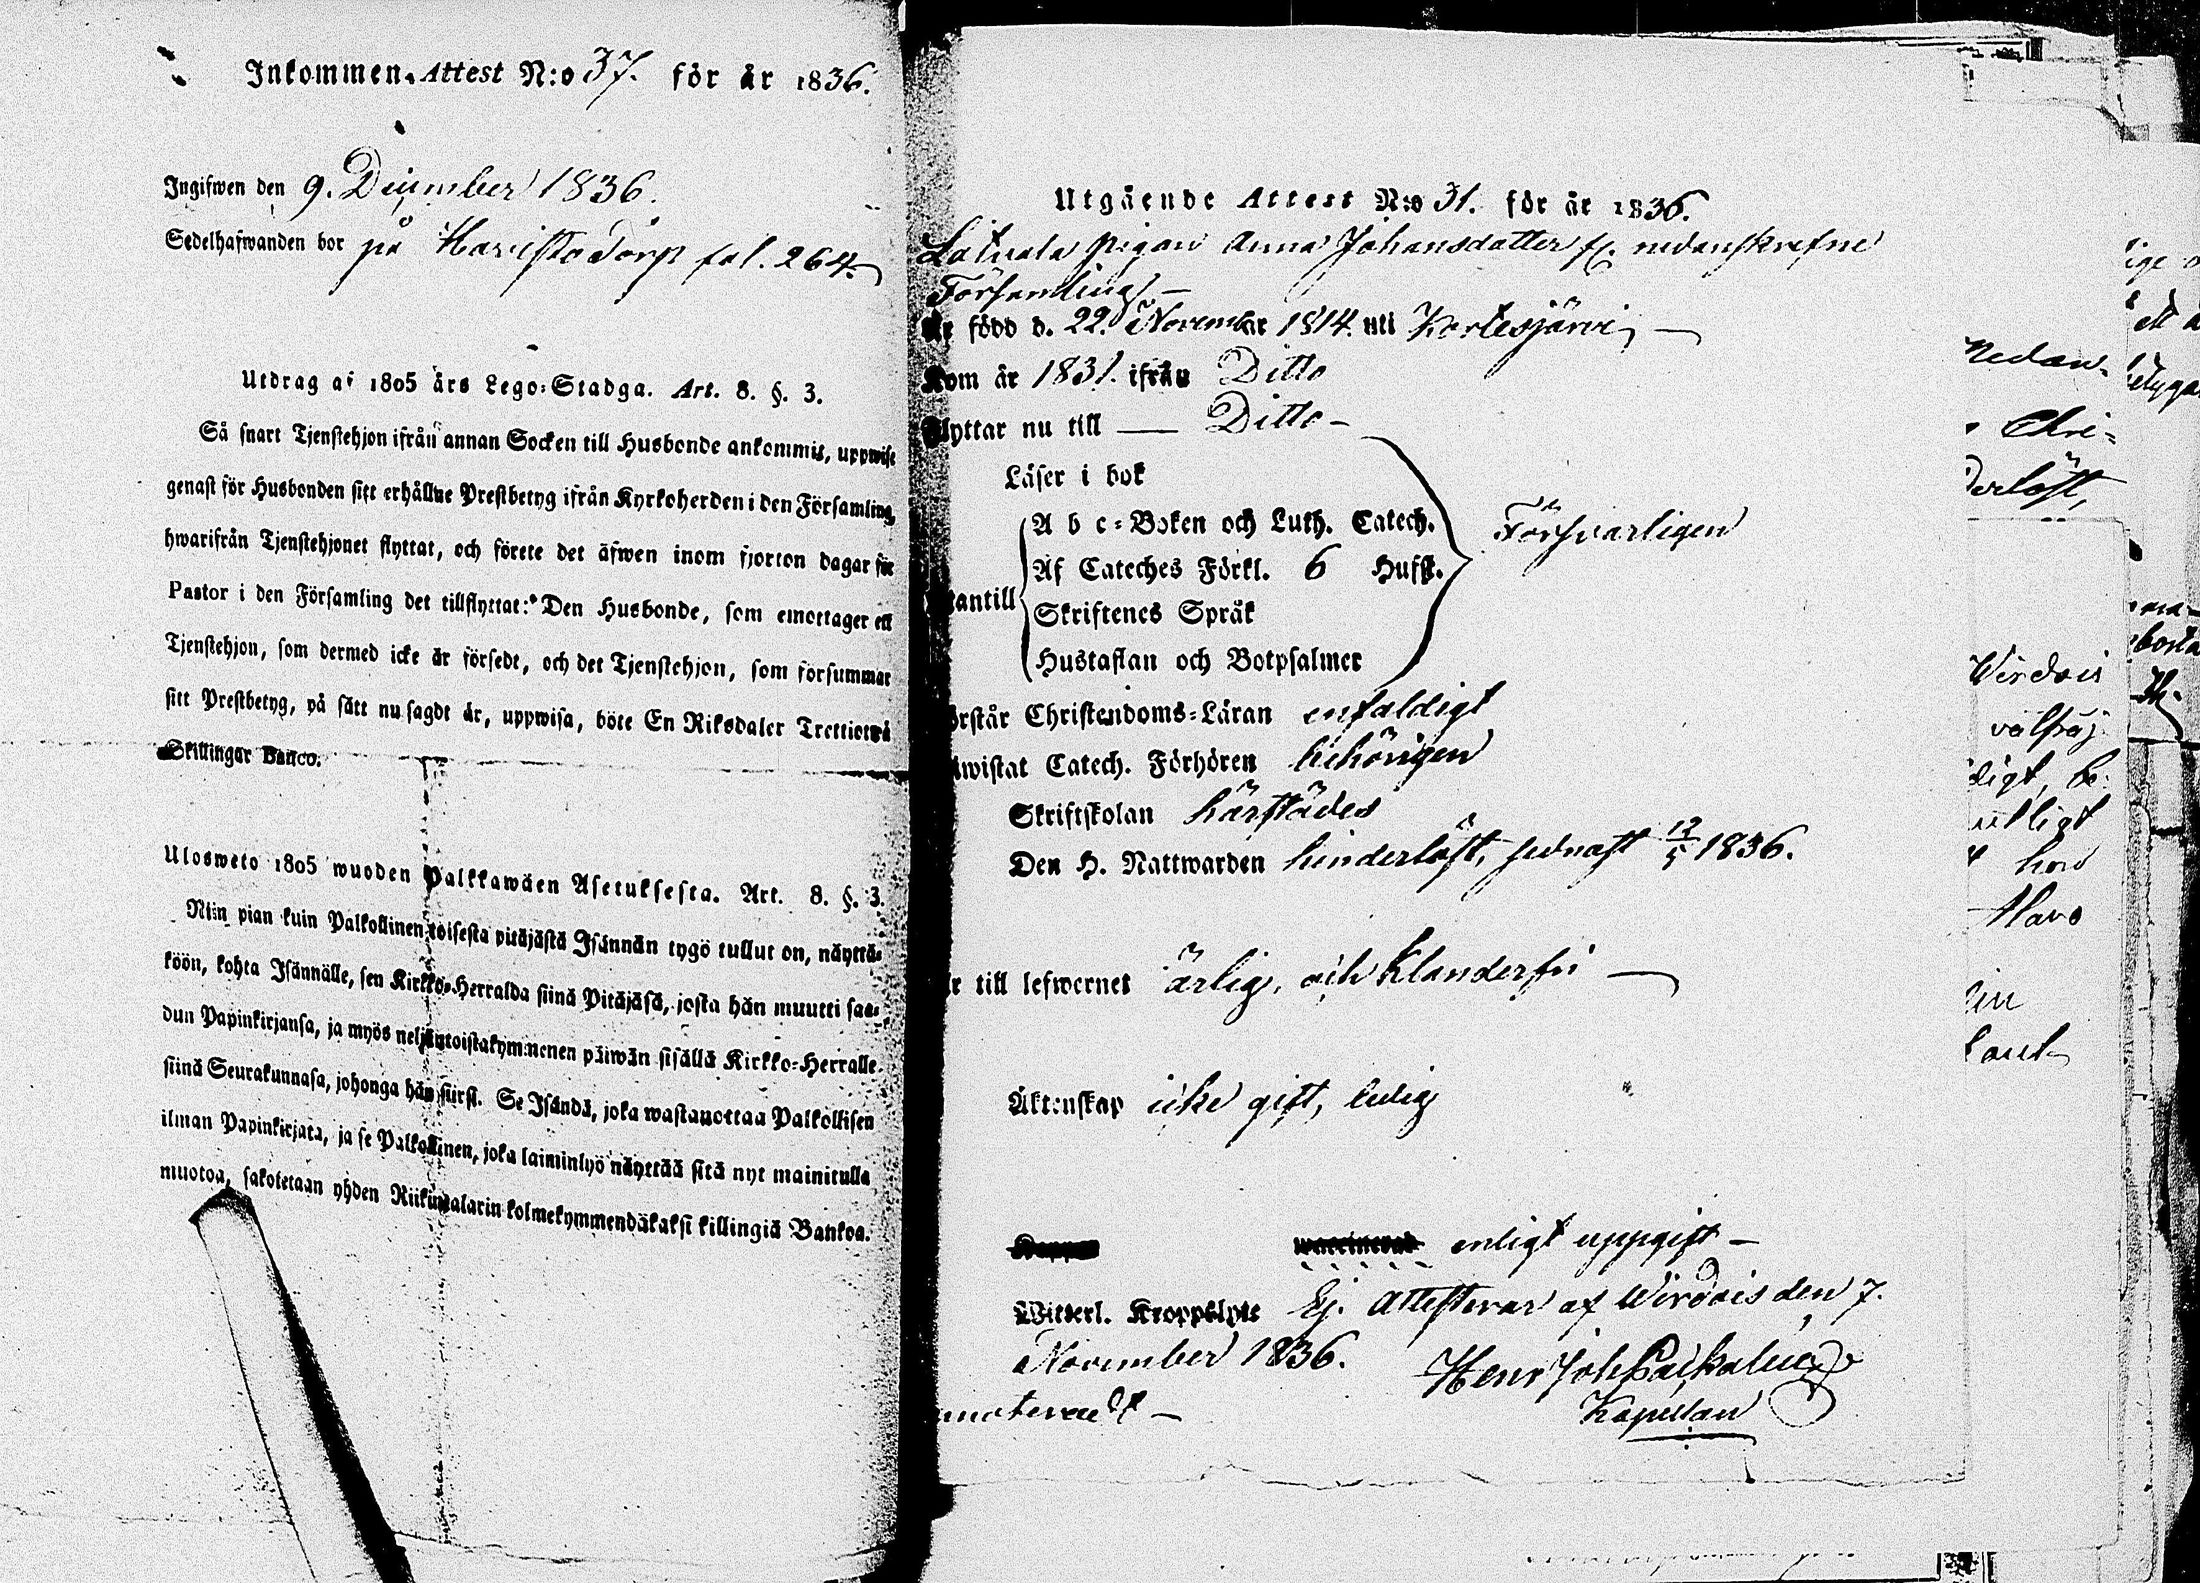 Inkommen. Attest N:o 37. för år 1836.
Ingifwen den 9. December 1836.
Sedelhafwanden bor på Haristo Torp fol. 264.
Utdrag af 1805 års Lego-Stadga. Art. 8. §. 3.
Så snart Tjenstehjon ifrån annan Socken till Husbonde ankommit, uppwise
genast för Husbonden sitt erhållne Prestbetyg ifrån Kyrkoherden i den Församling,
hwarifrån Tjenstehjonet flyttat, och förete det äfwen inom fjorton dagar för
Pastor i den Församling det tillflyttat: Den Husbonde, som emottager ett
Tjenstehjon, som dermed icke är försedt, och det Tjenstehjon, som försummar
sitt Prestbetyg, på sätt nu sagdt är, uppwisa, böte En Riksdaler Trettiotvå
Skillingar Banco.
Ulosweto 1805 wuoden Palkkawäen Asetuksesta. Art. 8. §. 3.
Niin pian kuin Palkollinen toisesta pitäjästä Isännän tygö tullut on, näyttä-
köön, kohta Isännälle, sen Kirkko-Herralda siinä Pitäjäsä, josta hän muutti saa-
dun Papinkirjansa, ja myös neljäntoistakymmenen päiwän sisällä Kirkko-Herralle
siinä Seurakunnasa, johonga hän siirsi. Se Isändä, joka wastanottaa Palkollisen
ilman Papinkirjata, ja se Palkollinen, joka laiminlyö näyttää sitä nyt mainitulla
muotoa, sakotetaan yhden Riikintalarin kolmekymmendäkaksi killingiä Bankoa.
Utgående Attest N:o 31. för år 1836.
Latvala pigan Anna Johansdotter fr. nedanskrefne
Församling —
Är född d. 22. November 1814. uti Kortesjärvi, —
Kom år 1831. ifrån Ditto
Flyttar nu till — Ditto —
Läser i bok
A b c-Boken och Luth. Catech.
Försvarligen
Af Cateches Förkl. 6 Hufst.
utantill
Skriftenes Språk
Hustaflan och Botpsalmer
Förstår Christendoms-Läran enfaldigt
Bewistat Catech. Förhören behörigen
Skriftskolan härstädes
Den H. Nattwarden hinderlöst, sednast 12/5 1836.
Är till lefwernet ärlig, och klanderfri —
Äktenskap icke gift, ledig
enligt uppgift —
Witterl. Kroppslyte Ej. Attesterar af Wirdois den 7.
November 1836. Henr Joh
Kapellan
Nedan-
Chri-
derlöst,
Wirdois
ldigt, be-
hon